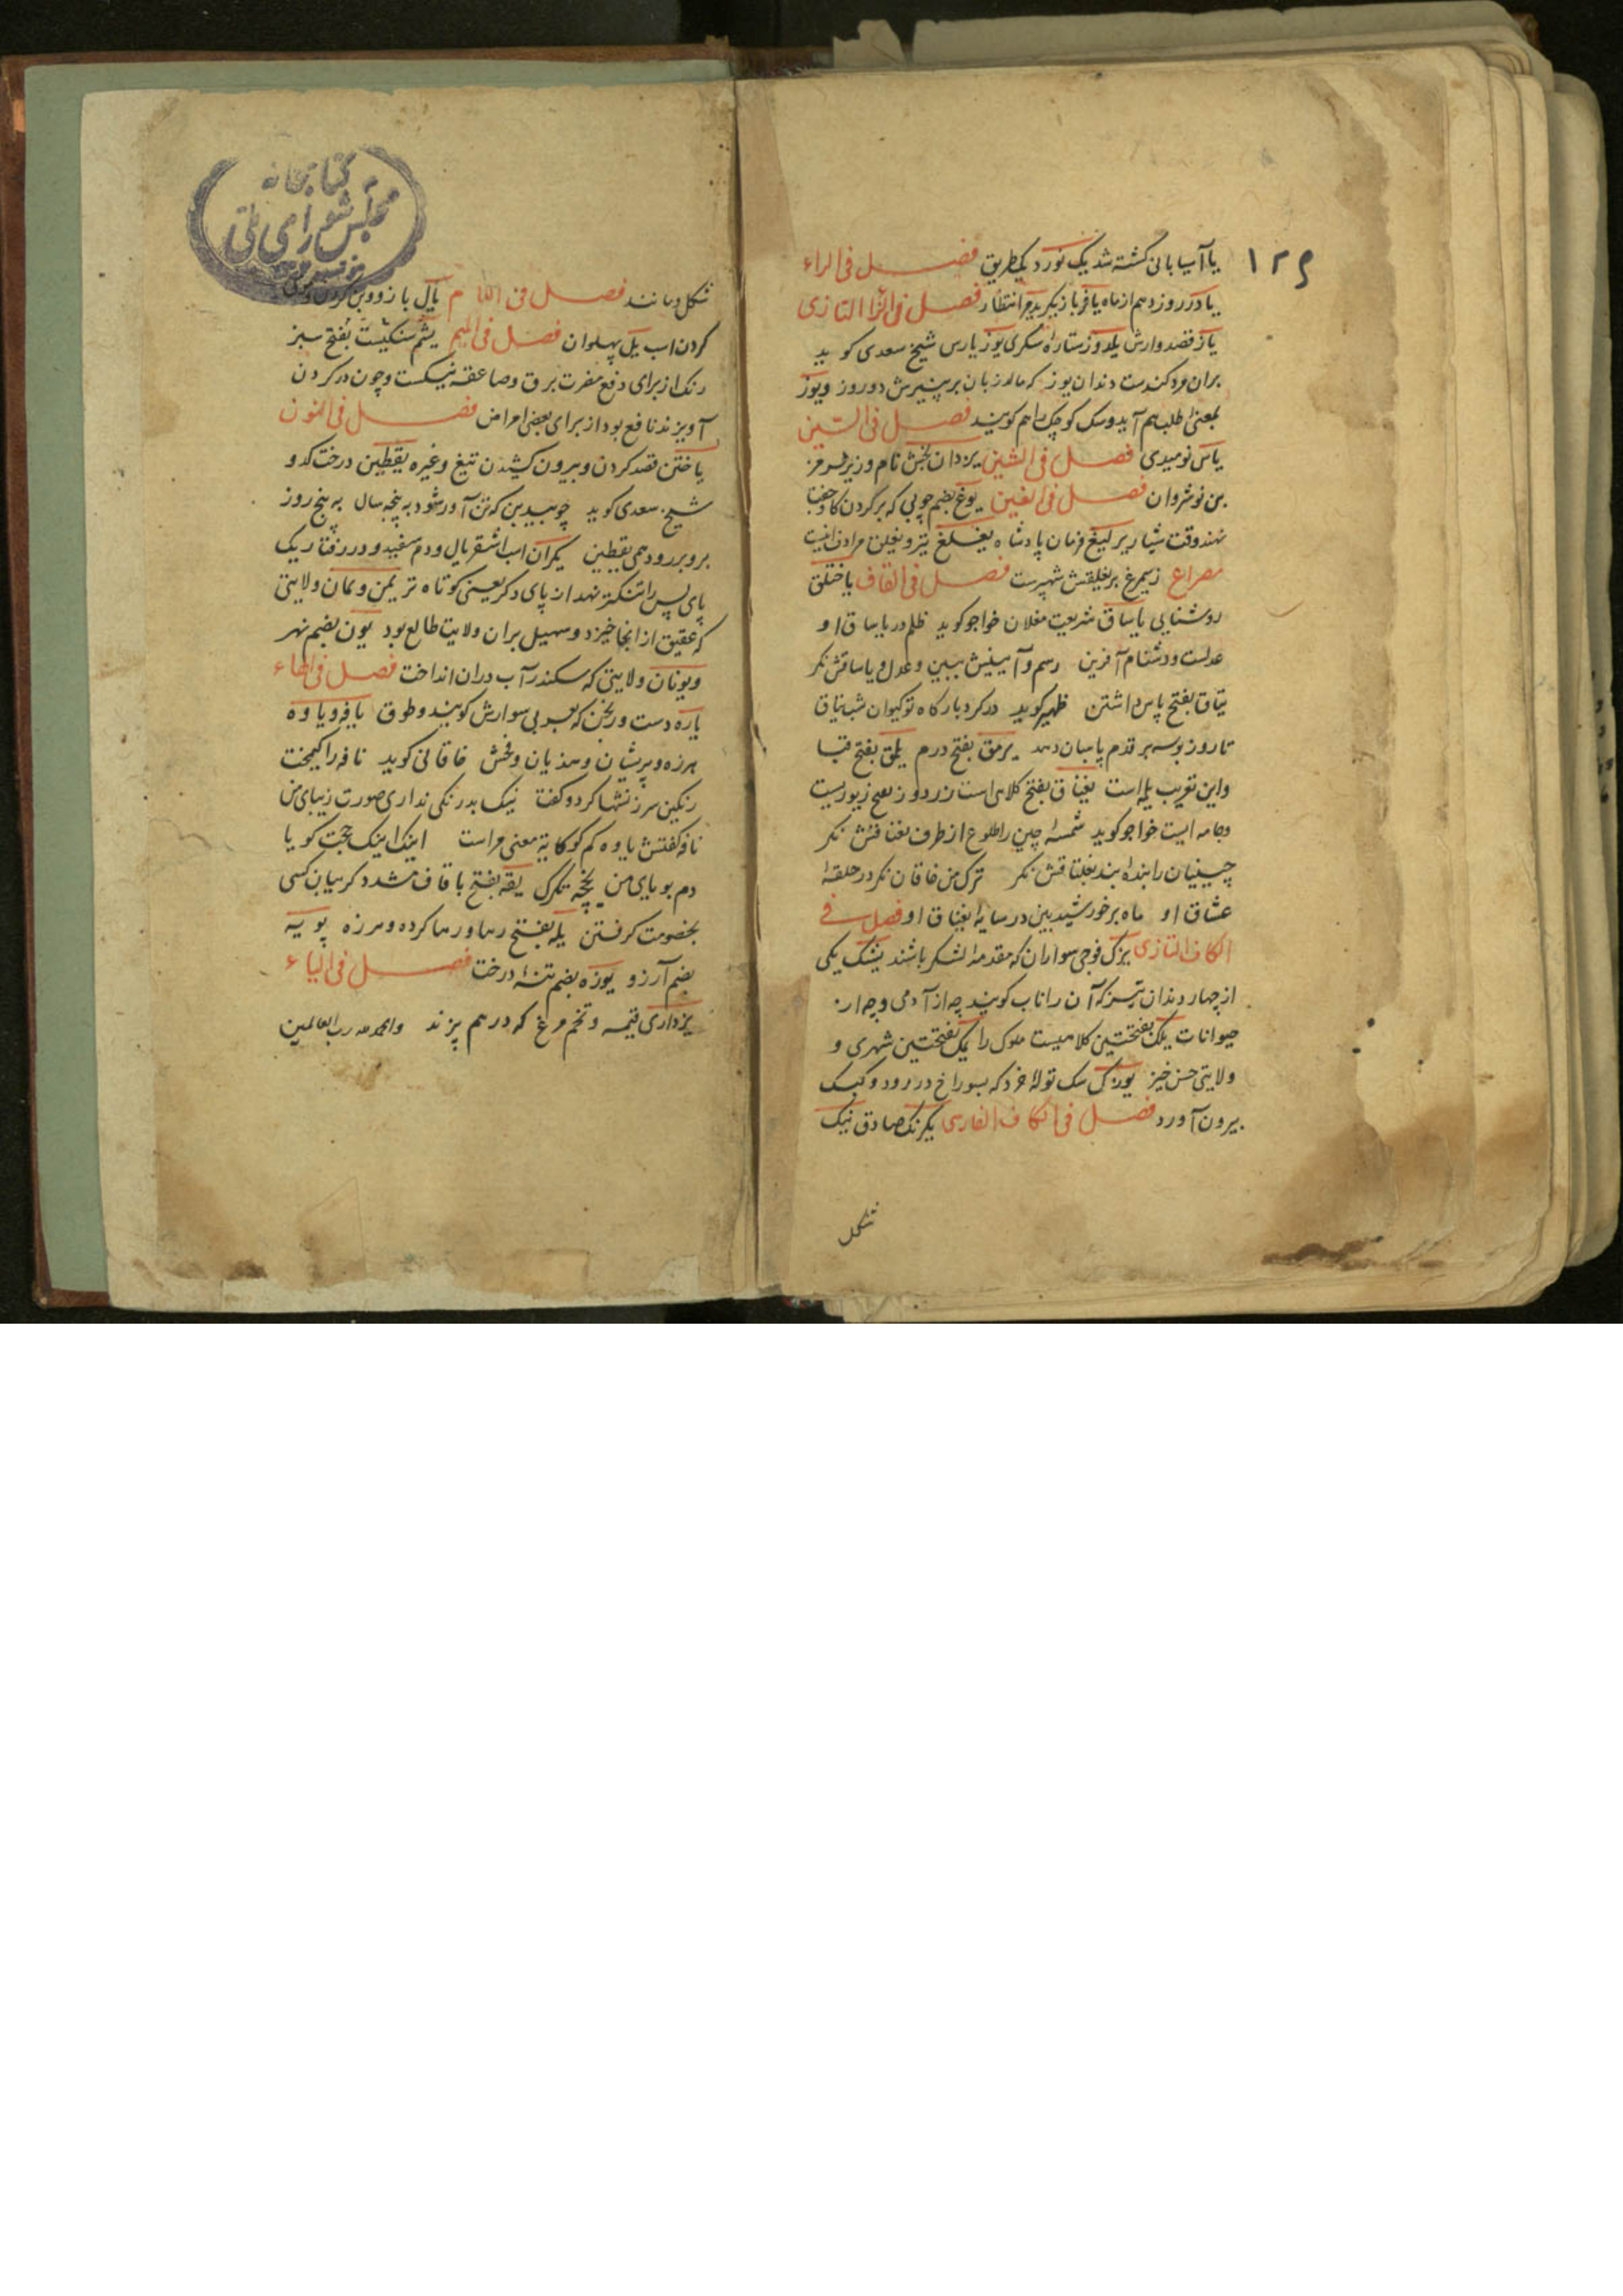 ۱۲۹
یا آسیا بانی کشته شد یک نورد یکطریق فصل فی الراء
یادر روز دهم از ماه یافر بازیکر یدمر انتظار فصل فی الزا التازی
یاز قصد وارش یلدوز ستاره سکری یوز پارس شیخ سعدی کوید
بران مرد کندست دندان یوز که مالد زبان بر پنیرش دو روز ویوز
بمعنی طلب هم آید وسک کوچک را هم کویند فصل فی السین
یاس نومیدی فصل فی الشین یزدان بخش نام وزیر هرمز
بن نوشروان فصل فی الغین یوغ بضم چوبی که بر کردن کاو جفت
نهند وقت شیار یرلیغ فرمان پادشاه یغلغ تیر و
مصراع زسیمرغ بر یغلقش شهپرست فصل فی القاف یاختلق
روشنایی یاساق شریعت مغلان خواجو کوید ظلم در یاساق او
عدلست ودشنام آفرین رسم وآیینیش ببین وعدل ویاساقش نکر
یتاق بفتح پاس داشتن ظهیر کوید در کرد بارکاه تو کیوان شب یتاق
تا روز بوسه بر قدم پاسبان دهد یرمق بفتح درم یلمق بفتح قبا
واین تعریب یلمه است یغناق بفتح کلاهی است زردوز زیوریست
وجامه ایست خواجو کوید شمسهٔ چین را طلوع از طرف یغناقش نکر
چینیان را بندهٔ بند بغلتاقش نکر ترک من خاقان نکر در حلقهٔ
عشاق او ماه بر خورشید بین در سایهٔ یغناق او فصل فی
الکاف التازی یزک فوجی سواران که مقدمهٔ لشکر باشند یشک یکی
از چهار دندان تیز که آن را ناب کویند چه از آدمی وچه از
حیوانات یلک بفتحتین کلاهیست ملوک را یمک بفتحتین شهری و
ولایتی حسن خیز یوزک سک تولهٔ خرد که بسوراخ در رود وکبک
بیرون آورد فصل فی الکاف الفارسی یکرنک صادق نیک
شکل
کتابخانه
مجلس شورای ملی
شکل ومانند فصل فی اللام یال بازو وبن کردن و
کردن اسب یل پهلوان فصل فی المیم یشم سنکیست بفتح سبز
رنک از برای دفع مضرت برق وصاعقه نیکست وچون در کردن
آویزند نافع بود از برای بعضی امراض فصل فی النون
یاختن قصد کردن وبیرون کشیدن تیغ وغیره یقطین درخت کدو
شیخ سعدی کوید چو بیدبن که تن آور شود به پنجه سال به پنج روز
برو بر رود همی یقطین یکران اسب اشقر یال ودم سفید ودر رفتار یک
پای پس را تنکتر نهد از پای دکر یعنی کوتاه تر یمن ویمان ولایتی
که عقیق از انجا خیزد وسهیل بران ولایت طالع بود یون بضم نهر
ویونان ولایتی که سکندر آب دران انداخت فصل فی الهاء
یاره دست ورنجن که بعربی سوارش کویند وطوق یافه ویاوه
هرزه وپریشان وهذیان وفحش خاقانی کوید نافه را کیمخت
رنکین سرزنشها کرد وکفت نیک بدرنکی نداری صورت زیبای من
نافه کفتش یاوه کم کو کایهٔ معنی مراست اینک اینک حجت کویا
دم بویای من یخچه تکرک یقه بفتح با قاف مشدد کریبان کسی
بخصومت کرفتن یله بفتح رها ورها کرده وهرزه یوبه
بضم آرزو یوزه بضم تنهٔ درخت فصل فی الیاء
یزداری قیمه وتخم مرغ که در هم پزند والحمد لله رب العالمین